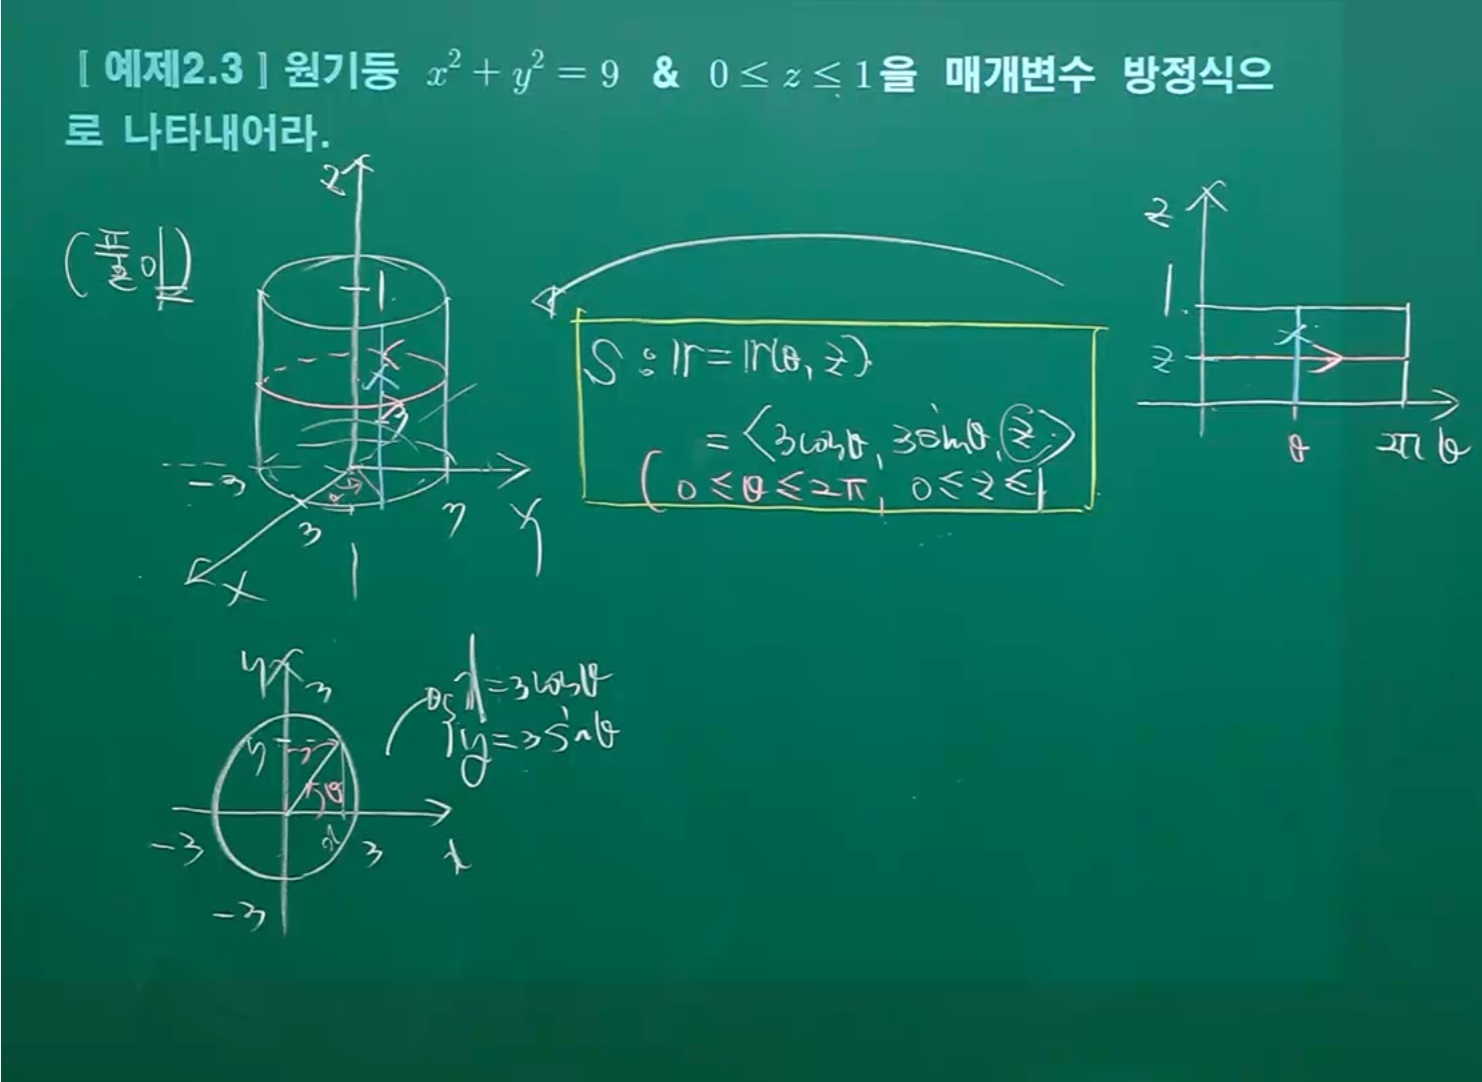 [ 예제2.3 ] 원기둥 x² + y² = 9 & 0 ≤ z ≤ 1을 매개변수 방정식으
로 나타내어라.
(풀이)
z
1
-3
3
3
y
x
S : r = r(θ, z)
= <3cosθ, 3sinθ, z>
( 0 ≤ θ ≤ 2π, 0 ≤ z ≤ 1
z
1
z
θ
2π θ
y
3
y
θ
x
-3
3
x
-3
x = 3cosθ
y = 3sinθ